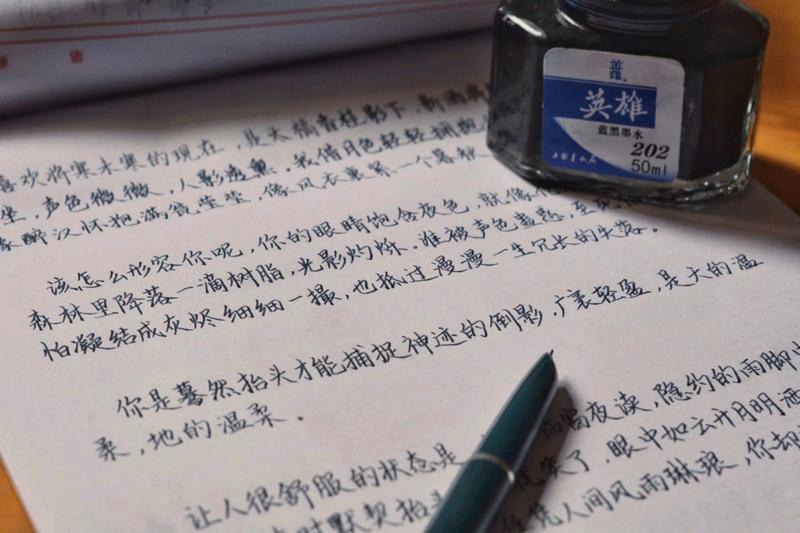 喜欢将寒未寒的现在，是大橘香桂影下，新雨
坐，声色微微，人影透熏，我借月色轻轻拥抱
家醉汉怀抱满瓷莹莹，像风衣裹紧一个暮秋
该怎么形容你呢，你的眼睛饱含夜色，就像
森林里降落一滴树脂，光影灼烁。谁被声色蛊惑，至死
怕凝结成灰烬细细一撮，也抵过漫漫一生冗长的失落。
你是蓦然抬头才能捕捉神迹的倒影，广袤轻盈，是天的温
柔，地的温柔。
让人很舒服的状态是 窗夜读，隐约的雨脚
时默契抬头 笑了，眼中如云开月明洒
凭人间风雨琳琅，你却
英雄
英雄
蓝黑墨水
202
50ml